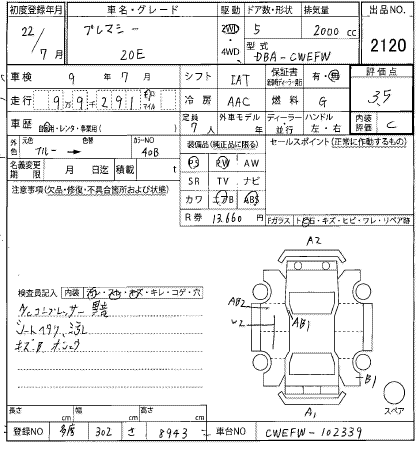 初度登録年月 車名・グレード 駆動 ドア数・形状 排気量 出品NO.
22/7月 プレマシー 20E 2WD・4WD 5 2000cc 2120
型式 DBA-CWEFW
車検 9年7月 シフト IAT 保証書 有・無 評価点
走行 9万9千291 冷房 AAC 燃料 G 3.5
車歴 自家用・レンタ・事業用( ) 定員 7人 外車モデル 年 ディーラー・並行 ハンドル 左・右 内装評価 C
外色 元色 ブルー→ 色替 カラーNO 40B 装備品(純正品に限る) セールスポイント(正常に作動するもの)
名義変更期限 月 日迄 積載 t PS PW AW
注意事項(欠品・修復・不具合箇所および状態) SR TV ナビ
カワ エアB ABS
R券 13,660 Fガラス トビ石・キズ・ヒビ・ワレ・リペア跡
A2
検査員記入 内装 ・キズ・キレ・コゲ・穴
A/Cコンプレッサー異音
AB2
W2
AB1
B1
A1
スペア
長さ cm 幅 cm 高さ cm
登録NO 多摩 302 さ 8943 車台NO CWEFW-102339